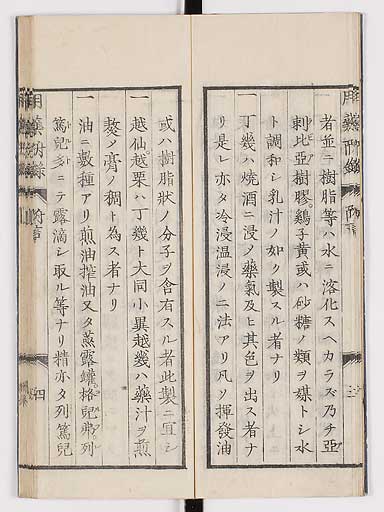 一者並ニ樹脂等ハ水ニ溶化スヘカラズ乃チ亞
刺比亞樹膠鷄子黄或ハ砂糖ノ類ヲ媒トシ水
ト調和シ乳汁ノ如ク製スル者ナリ
一丁幾ハ焼酒ニ浸ノ藥氣及ヒ其色ヲ出ス者ナ
リ是レ亦タ冷浸温浸ノ二法アリ凡ソ揮發油
或ハ樹脂状ノ分子ヲ含有スル者此製ニ宜シ
一越仙越栗ハ丁幾ト大同小異越幾ハ藥汁ヲ煎
熬ノ膏ノ稠ト為ス者ナリ
一油ニ數種アリ煎油搾油又タ蒸露罐格兒弗列
篤兒多ニテ露滴シ取ル等ナリ精亦タ列篤兒
四